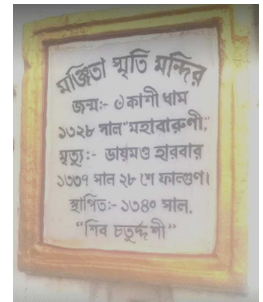 মঞ্জিতা স্মৃতি মন্দির
জন্ম:- ৺কাশী ধাম
১৩২৮ সাল "মহাবারুণী",
মৃত্যু:- ডায়মণ্ড হারবার
১৩৩৭ সাল ২৮ শে ফাল্গুণ।
স্থাপিত:- ১৩৪০ সাল.
"শিব চতুর্দ্দশী"